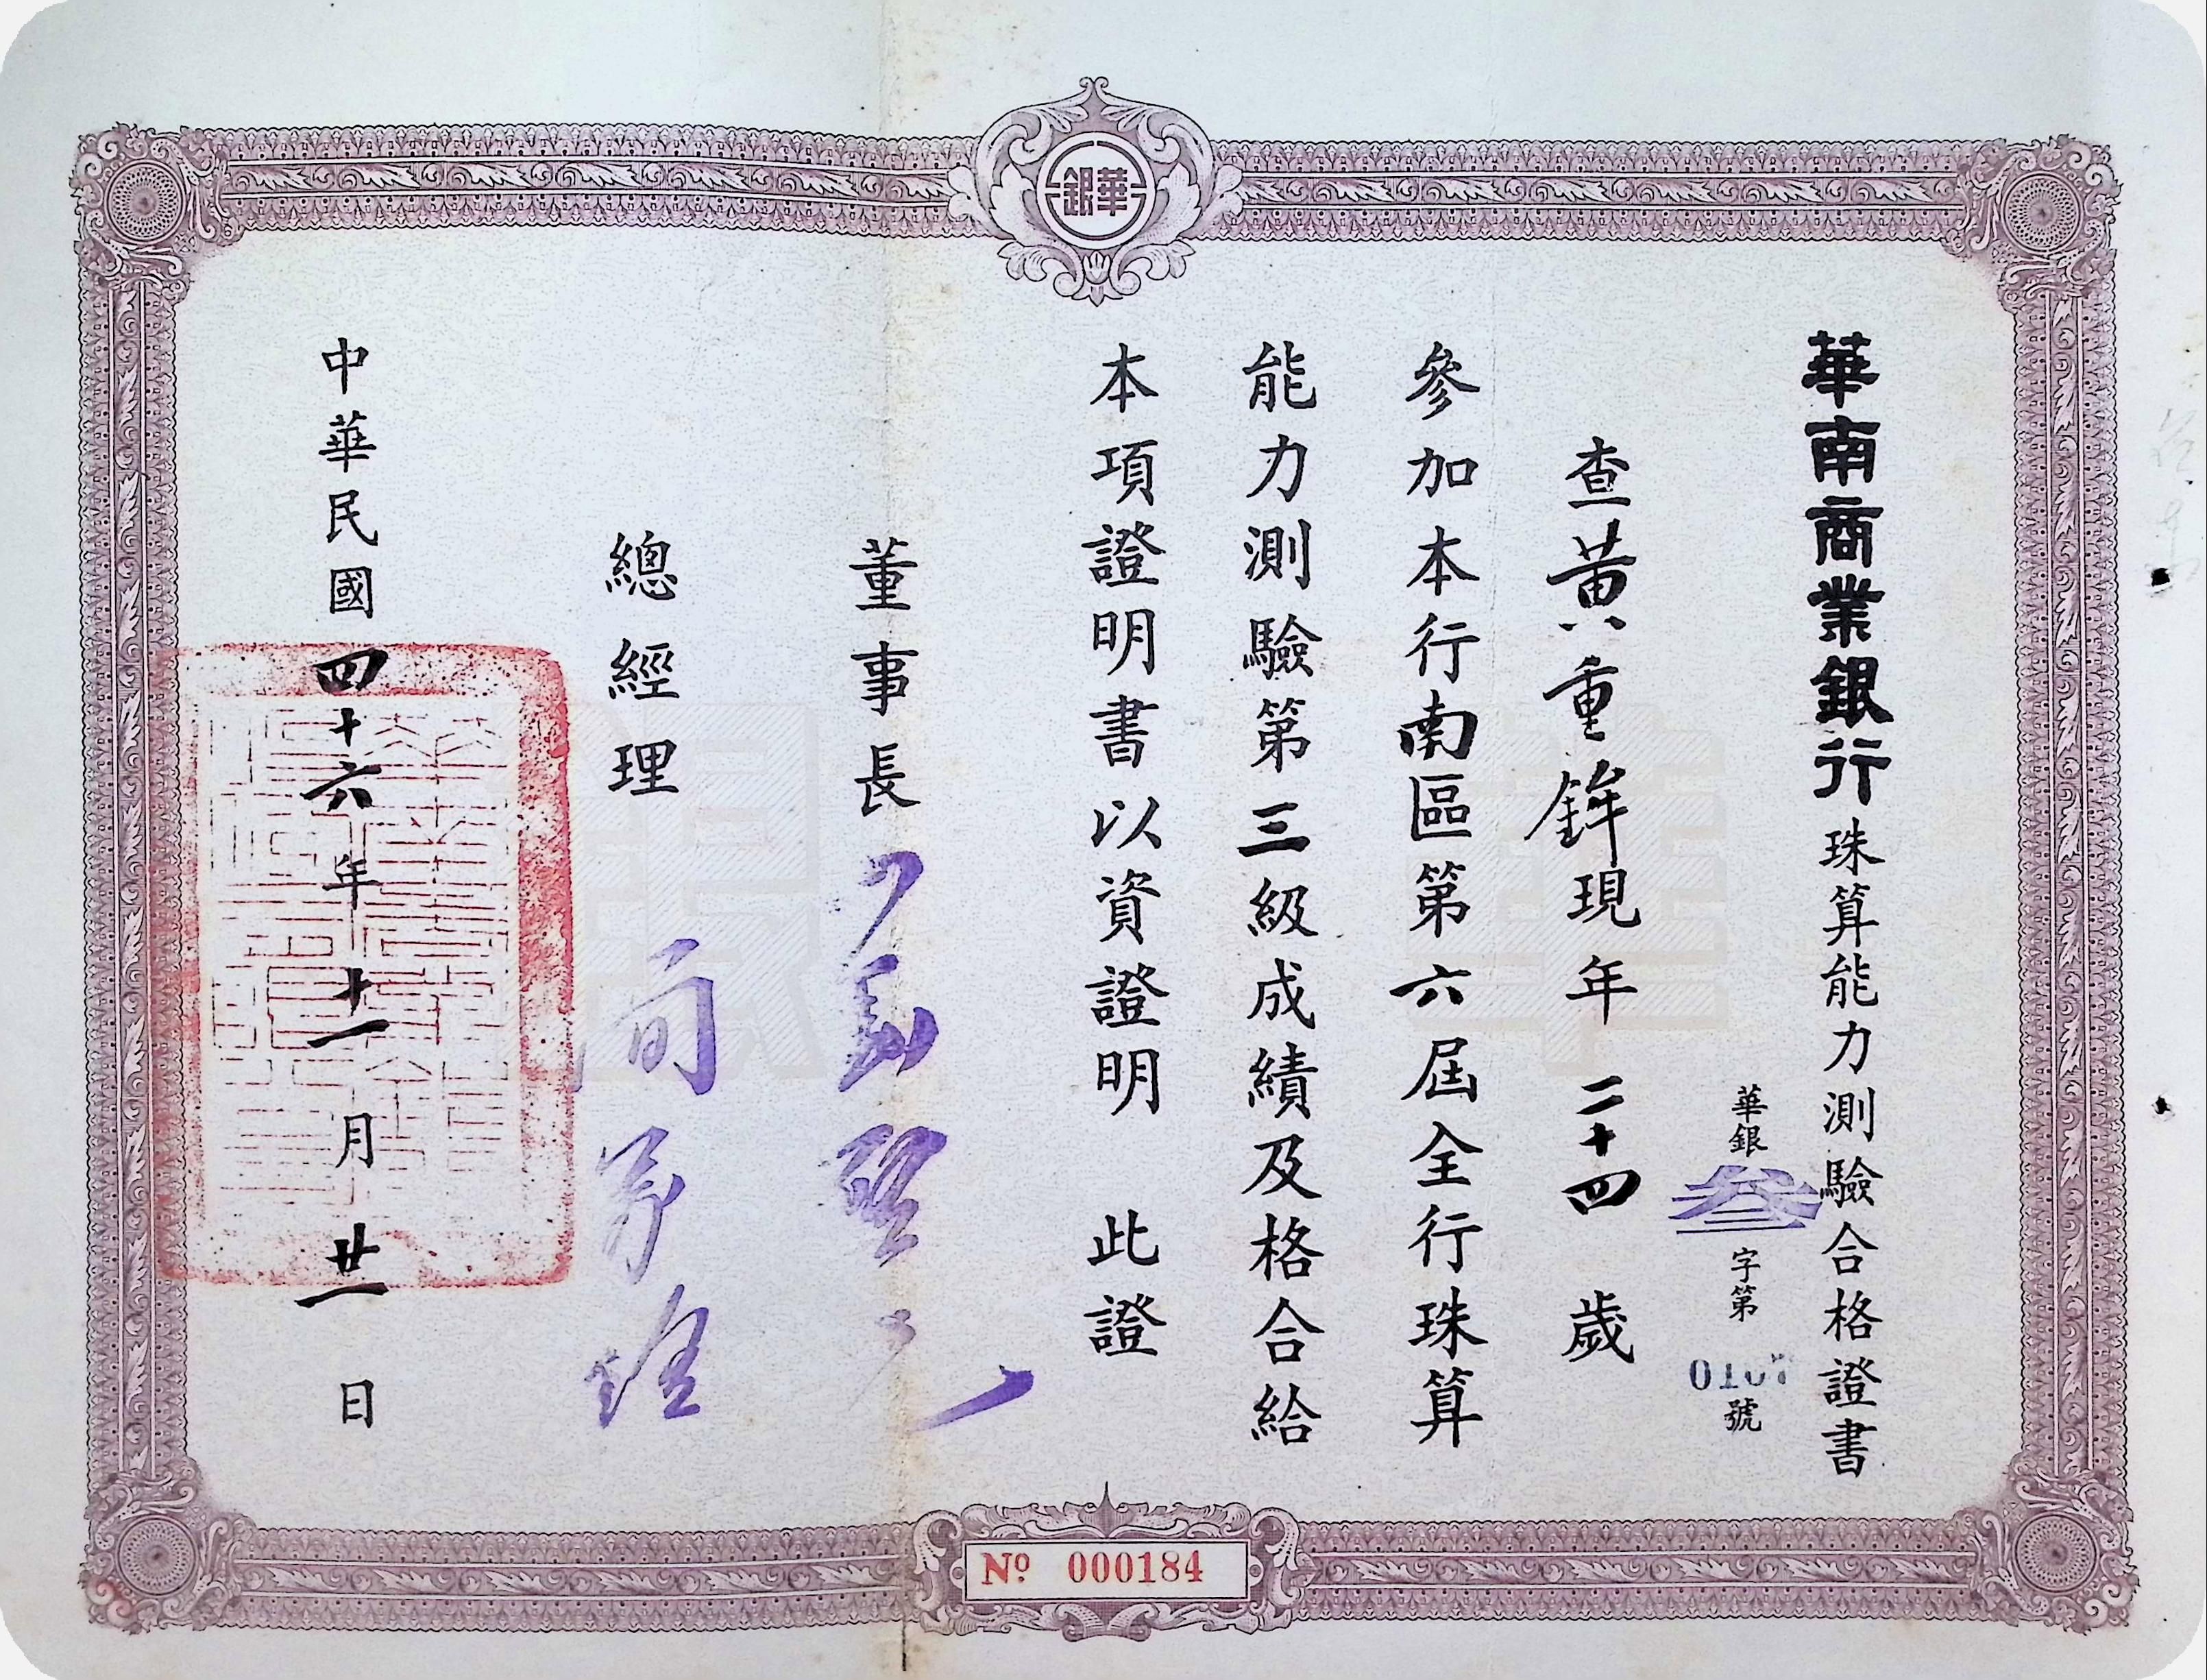 銀華
華南商業銀行珠算能力測驗合格證書
華銀叁字第號
查黃重鉾現年二十四歲
參加本行南區第六屆全行珠算
能力測驗第三級成績及格合給
本項證明書以資證明 此證
董事長
總經理
中華民國四十六年十一月廿一日
Nº 000184